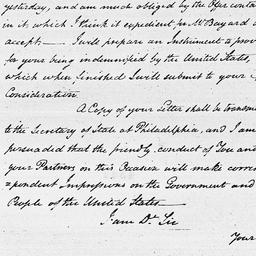 yesterday, and am much obliged by the Offer contain
in it, which I think it expedient for Mr Bayard
accept— I will prepare an Instrument to prov
for your being indemnified by the United States,
which when finished I will submit to your
Consideration.
A Copy of your Letter shall be transm
to the Secretary of State at Philadelphia, and I am
persuaded that the friendly conduct of You and
your Partners on this Occasion will make corre
=spondent Impressions on the Government and
People of the United States—
I am Dr Sir
Your